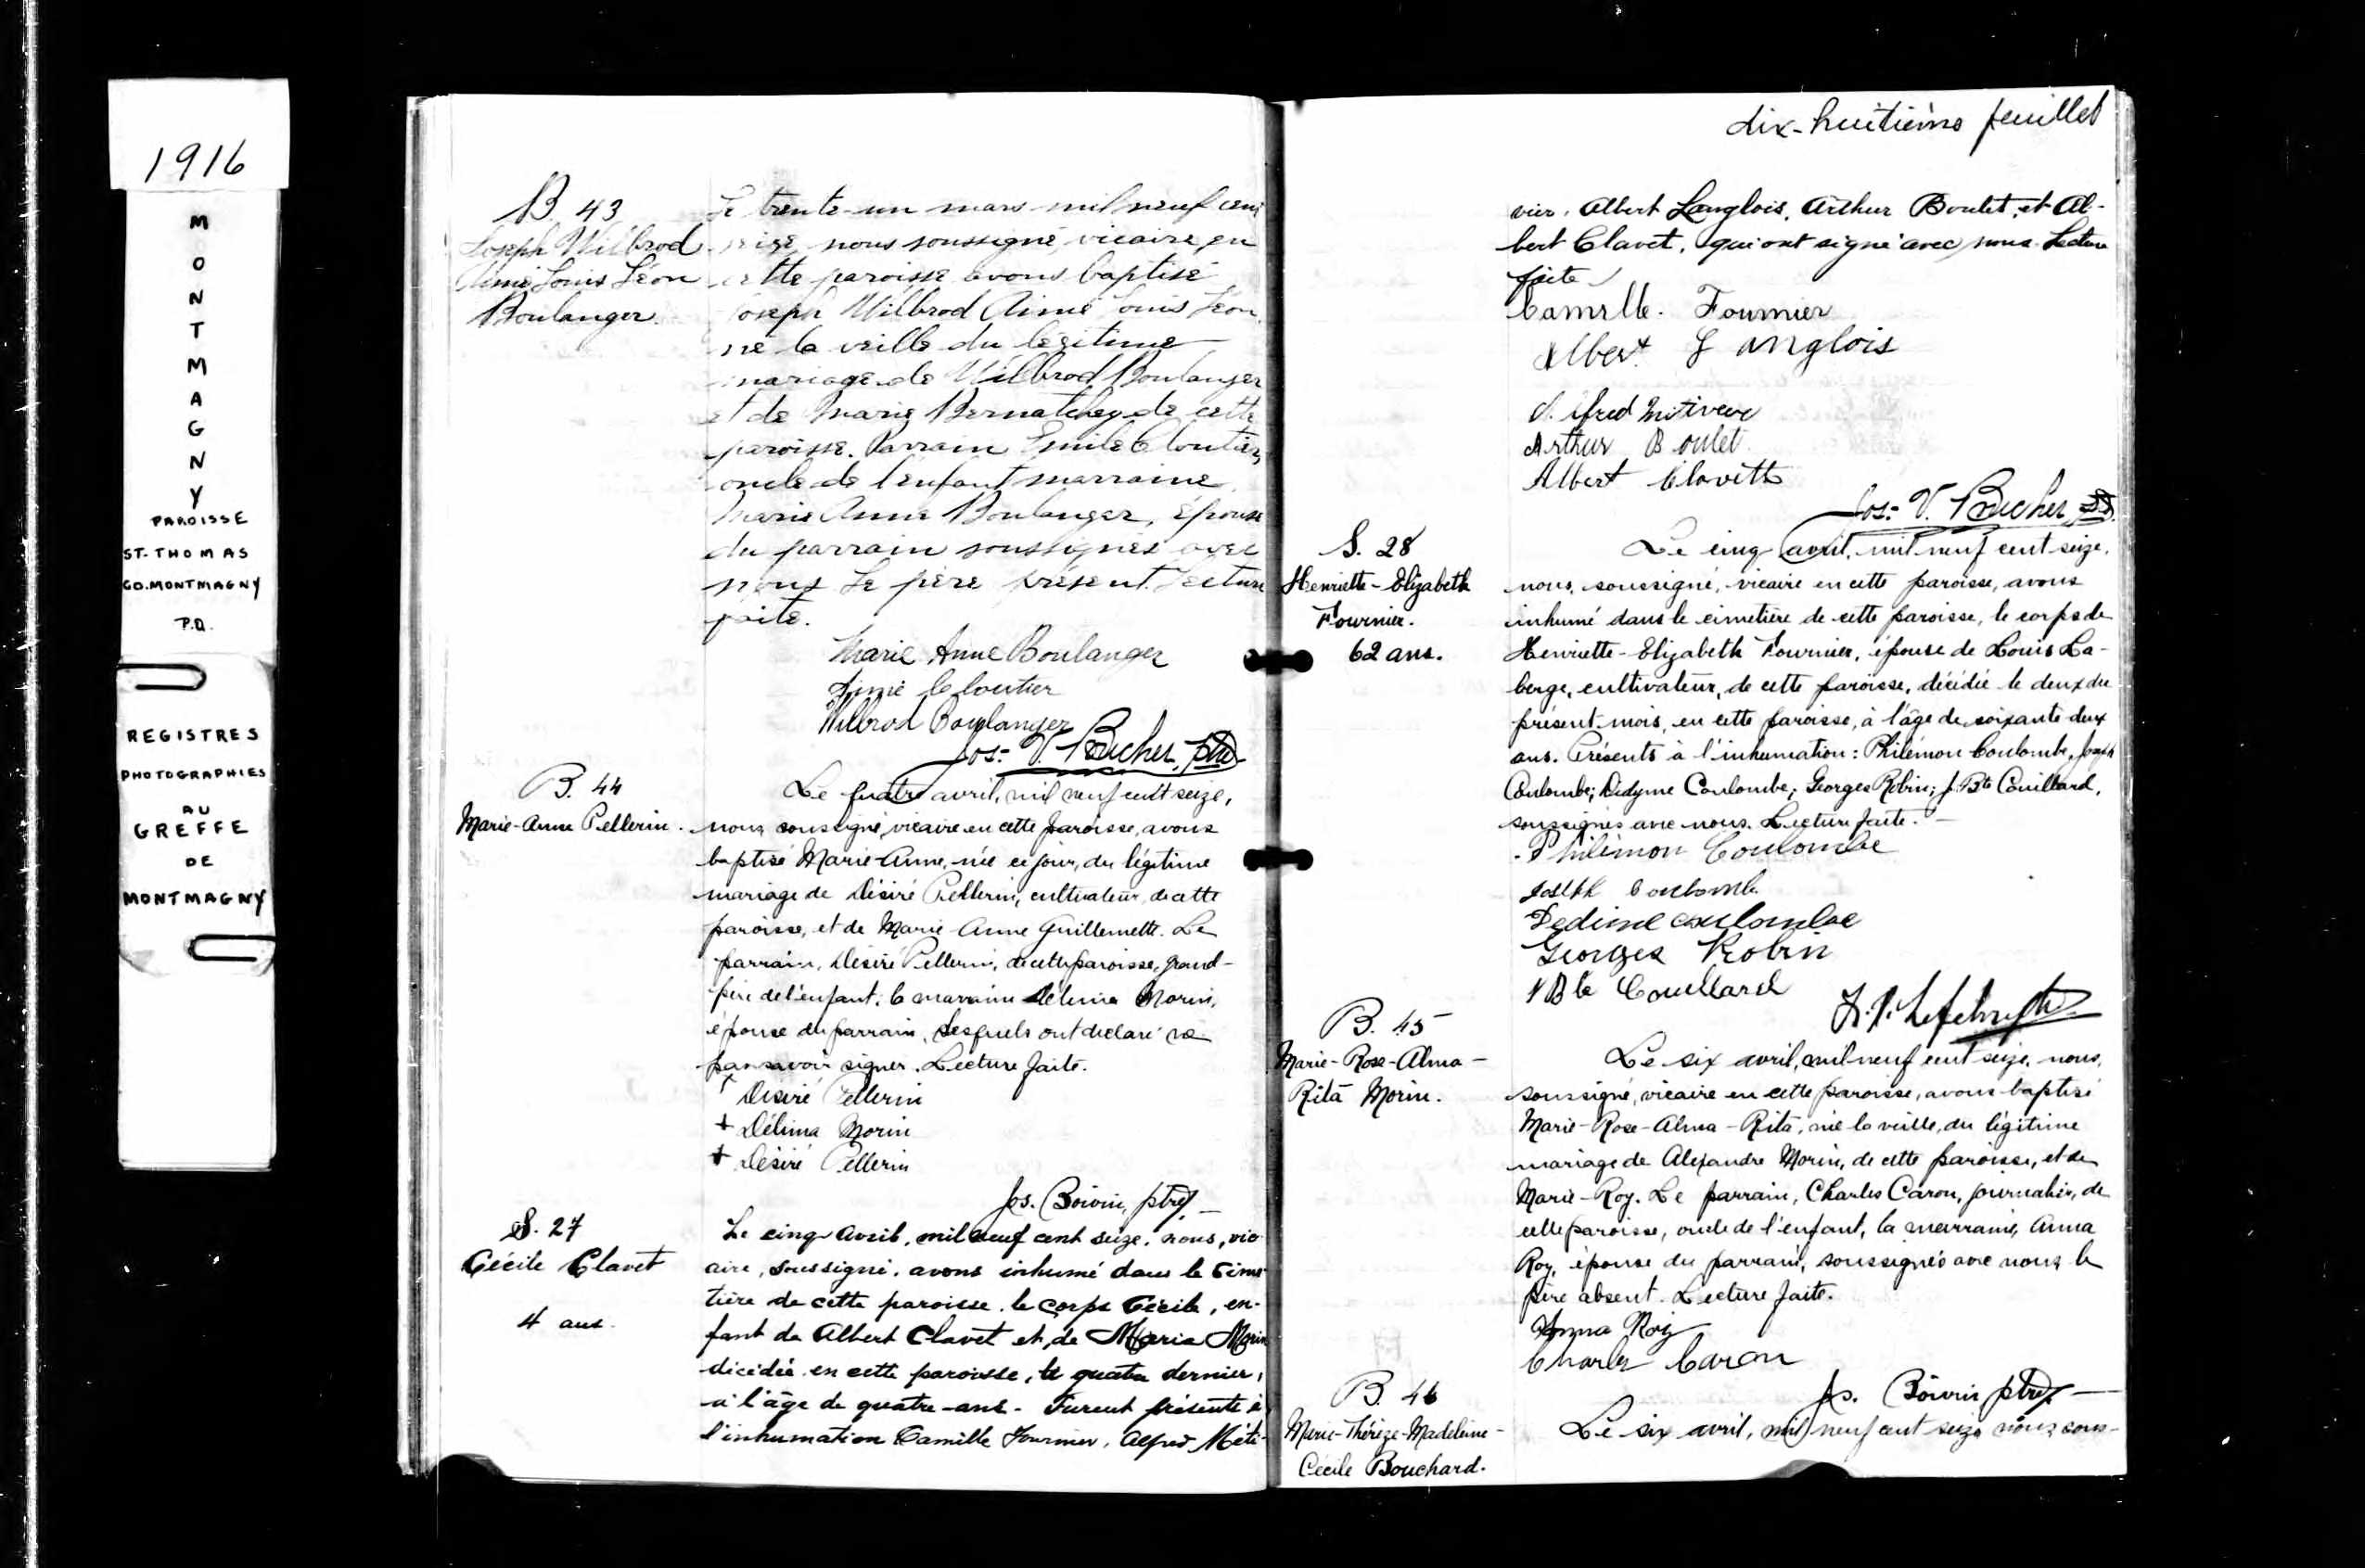 1916
MONTMAGNY
PAROISSE
ST. THOMAS
CO. MONTMAGNY
P.Q.
REGISTRES
PHOTOGRAPHIES
AU
GREFFE
DE
MONTMAGNY
B. 43
Joseph Wilbrod
Aimé Louis Léon
Boulanger.
Le trente-un mars mil neuf cent
seize, nous soussigné, vicaire, en
cette paroisse avons baptisé
Joseph Wilbrod Aimé Louis Léon,
né la veille du légitime
mariage de Wilbrod Boulanger
et de Marie Bernatchez de cette
paroisse. Parrain Emile Cloutier,
oncle de l'enfant marraine
Marie Anne Boulanger, épouse
du parrain soussignés avec
nous Le père présent. Lecture
faite.
Marie Anne Boulanger
Aimé Cloutier
Wilbrod Boulanger
Jos. V. Bucher, ptre
B. 44
Marie-Anne Pellerin.
Le quatre avril, mil neuf cent seize,
nous soussigné, vicaire en cette paroisse, avons
baptisé Marie-Anne, née ce jour, du légitime
mariage de Désiré Pellerin, cultivateur, de cette
paroisse, et de Marie-Anne Guillemette. Le
parrain, Désiré Pellerin, de cette paroisse, grand-
père de l'enfant, la marraine Délima Morin,
épouse du parrain, lesquels ont déclaré ne
pas savoir signer. Lecture faite.
+ Désiré Pellerin
+ Délima Morin
+ Désiré Pellerin
Jos. Boivin, ptre
S. 27
Cécile Clavet
4 ans.
Le cinq Avril, mil neuf cent seize, nous, vic-
aire, soussigné, avons inhumé dans le cime-
tière de cette paroisse, le corps Cécile, en-
fant de Albert Clavet et de Maria Morin
décédée en cette paroisse, le quatre dernier,
à l'âge de quatre-ans. Furent présents à
l'inhumation Camille Fournier, Alfred Méti-
dix-huitième feuillet
vier, Albert Langlois, Arthur Boulet, et Al-
bert Clavet, qui ont signé avec nous. Lecture
faite
Camille Fournier
Albert Langlois
Alfred Metivere
Arthur Boulet
Albert Clavette
Jos. V. Bucher
S. 28
Henriette-Elizabeth
Fournier.
62 ans.
Le cinq avril, mil neuf cent seize,
nous, soussigné, vicaire en cette paroisse, avons
inhumé dans le cimetière de cette paroisse, le corps de
Henriette-Elizabeth Fournier, épouse de Louis La-
berge, cultivateur, de cette paroisse, décédée le deux du
présent mois, en cette paroisse, à l'âge de soixante-deux
ans. Présents à l'inhumation: Philémon Coulombe, Joseph
Coulombe; Didyme Coulombe; Georges Robin; J. Bte Couillard,
soussignés avec nous. Lecture faite.
Philémon Coulombe
Joseph Coulombe
Dedime Coulombe
Georges Robin
J Bte Couillard
B. 45
Marie-Rose-Alma-
Rita Morin.
Le six avril, mil neuf cent seize, nous,
soussigné, vicaire en cette paroisse, avons baptisé
Marie-Rose-Alma-Rita, née la veille, du légitime
mariage de Alexandre Morin, de cette paroisse, et de
Marie-Roy. Le parrain, Charles Caron, journalier, de
cette paroisse, oncle de l'enfant, la marraine, Anna
Roy, épouse du parrain, soussignés avec nous le
père absent. Lecture faite.
Anna Roy
Charles Caron
Jos. Boivin ptre
B. 46
Marie-Thérèze-Madeleine-
Cécile Bouchard.
Le six avril, mil neuf cent seize nous sous-